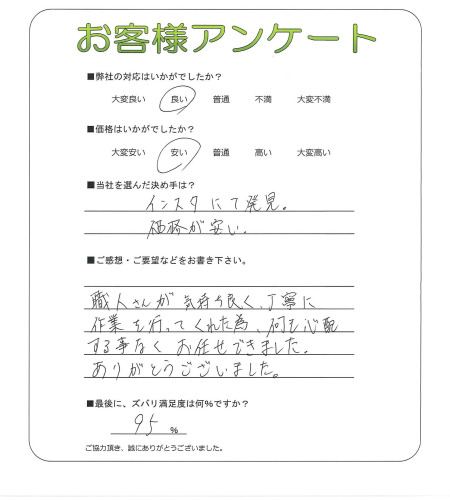 お客様アンケート
■弊社の対応はいかがでしたか？
大変良い 良い 普通 不満 大変不満
■価格はいかがでしたか？
大変安い 安い 普通 高い 大変高い
■当社を選んだ決め手は？
インスタにて発見。
価格が安い。
■ご感想・ご要望などをお書き下さい。
職人さんが気持ち良く、丁寧に
作業を行ってくれた為、何も心配
する事なくお任せできました。
ありがとうございました。
■最後に、ズバリ満足度は何％ですか？
95 ％
ご協力頂き、誠にありがとうございました。